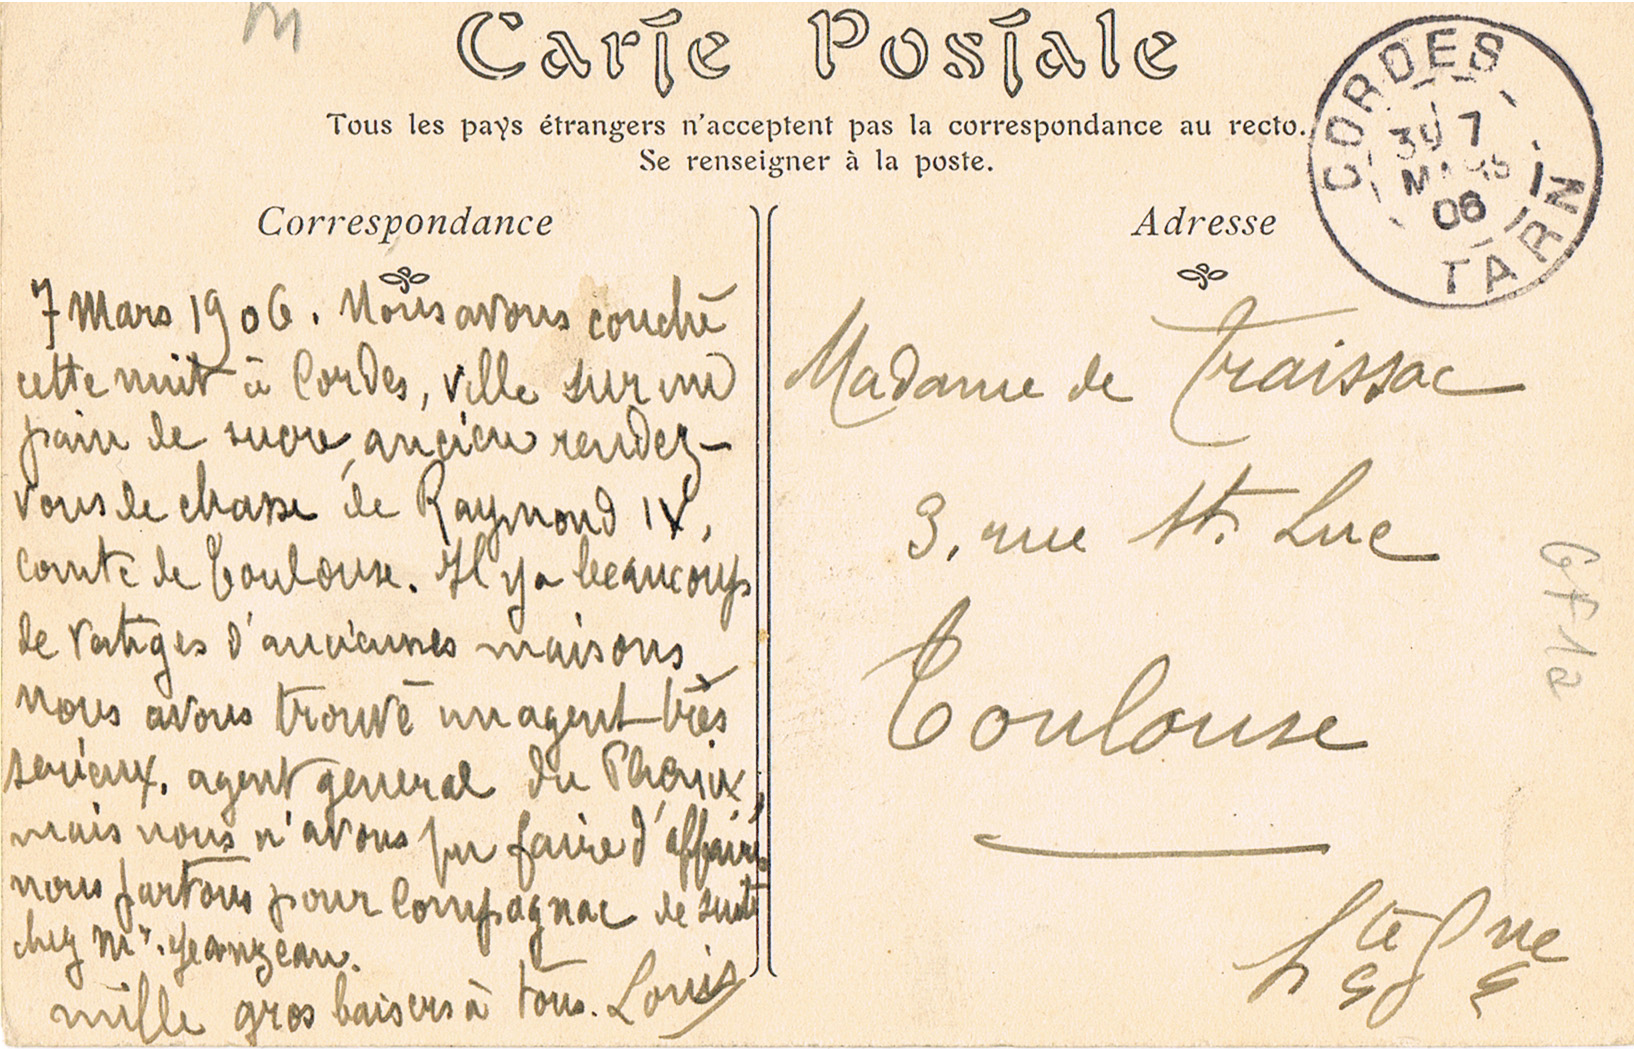 m
Carte Postale
Tous les pays étrangers n'acceptent pas la correspondance au recto.
Se renseigner à la poste.
CORDES
7
MARS
06
TARN
Correspondance
7 Mars 1906. Nous avons couché
cette nuit à Cordes, ville sur un
pain de sucre, ancien rendez-
vous de chasse de Raymond IV,
comte de Toulouse. Il y a beaucoup
de vestiges d'anciennes maisons
nous avons trouvé un agent très
serieux, agent general du Phénix,
mais nous n'avons pu faire d'affaires
nous partons pour Compagnac de suite
chez Mr. Jeanzeau.
mille gros baisers à tous. Louis
Adresse
Madame de Traissac
3, rue St. Luc
Toulouse
Hte Gne